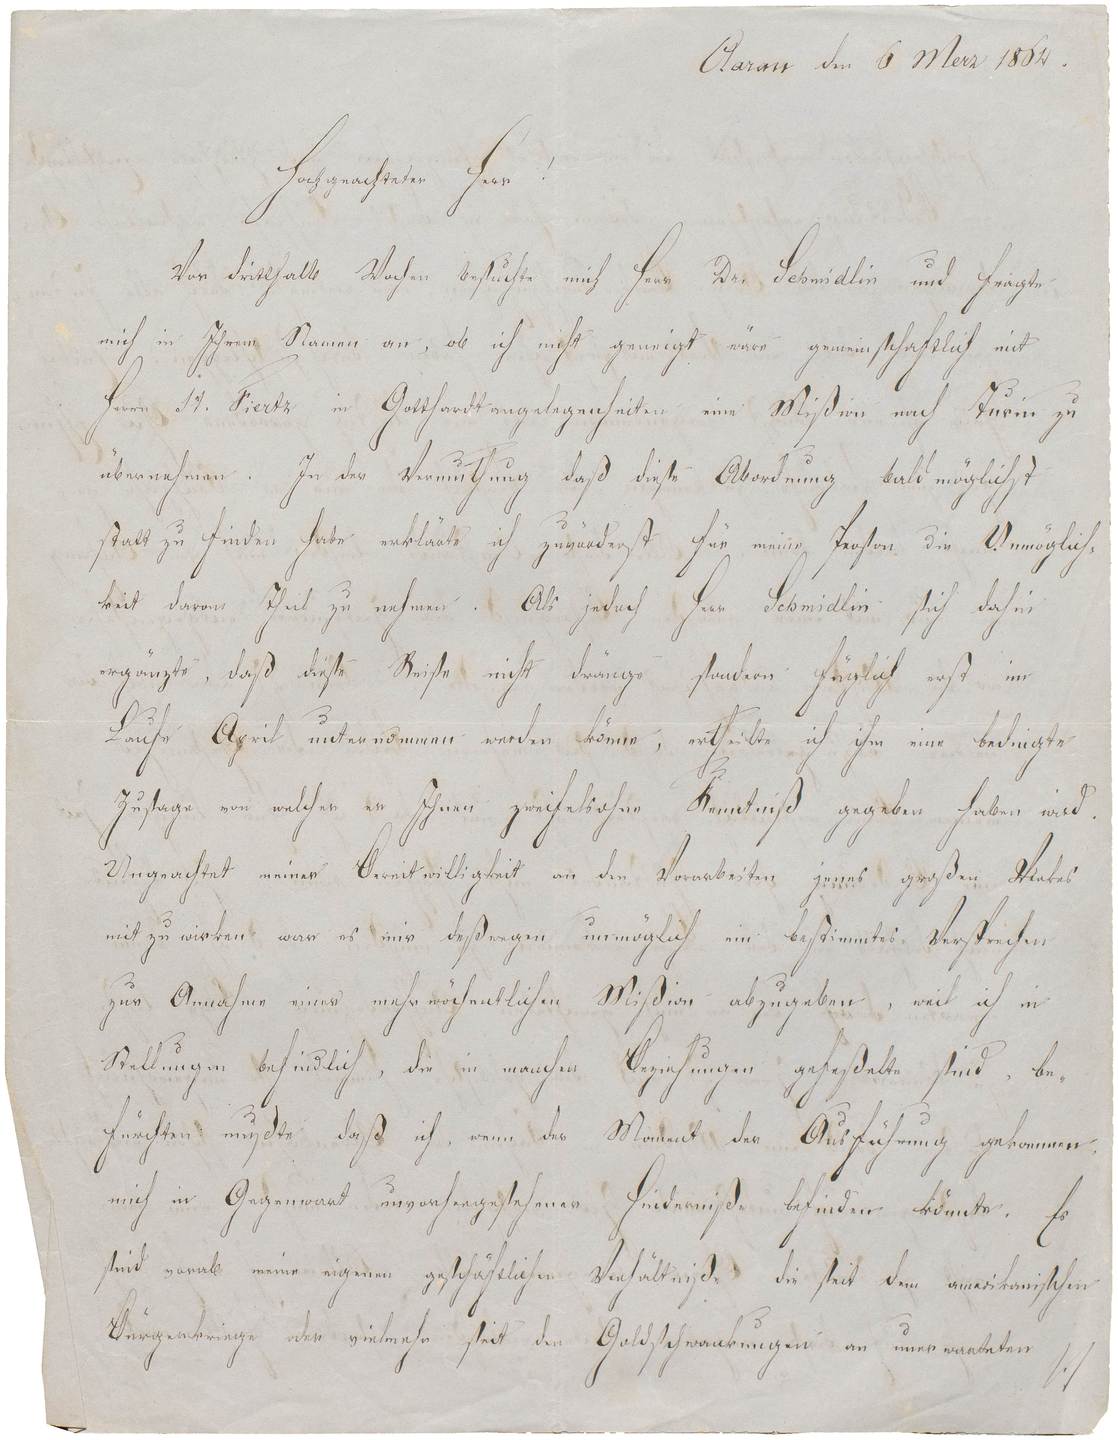 Aarau den 6 Merz 1864.
Hochgeachteter Herr!
Vor dritthalb Wochen besuchte mich Herr Dr. Schmidlin und fragte
mich in Ihrem Namen an, ob ich nicht geneigt wäre gemeinschaftlich mit
Herrn Fiertz in Gotthardtangelegenheiten eine Mißion nach Turin zu
übernehmen. In der Vermuthung daß diese Abordnung bald möglichst
statt zu finden habe erklärte ich zuvörderst für meine Person die Unmöglich-
keit daran Theil zu nehmen. Als jedoch Herr Schmidlin sich dahin
ergänzte, daß diese Reise nicht dränge sondern füglich erst im
Laufe April unternommen werden könne, ertheilte ich ihm eine bedingte
Zusage von welcher er Ihnen zweifelsohne Kenntniß gegeben haben wird.
Ungeachtet meiner Bereitwilligkeit an den Vorarbeiten jenes großen Werkes
mit zu wirken war es mir deßwegen unmöglich ein bestimmtes Versprechen
zur Annahme einer mehrwöchentlichen Mißion abzugeben, weil ich in
Stellungen befindlich, die in manchen Beziehungen gefeßelte sind, be-
fürchten mußte daß ich, wenn der Moment der Ausführung gekommen,
mich in Gegenwart unvorhergesehener Hinderniße befinden könnte. Es
sind vorab meine eigenen geschäftlichen Verhältniße die seit dem amerikanischen
Bürgerkriege oder vielmehr seit den Goldschwankungen an unerwarteten
./.